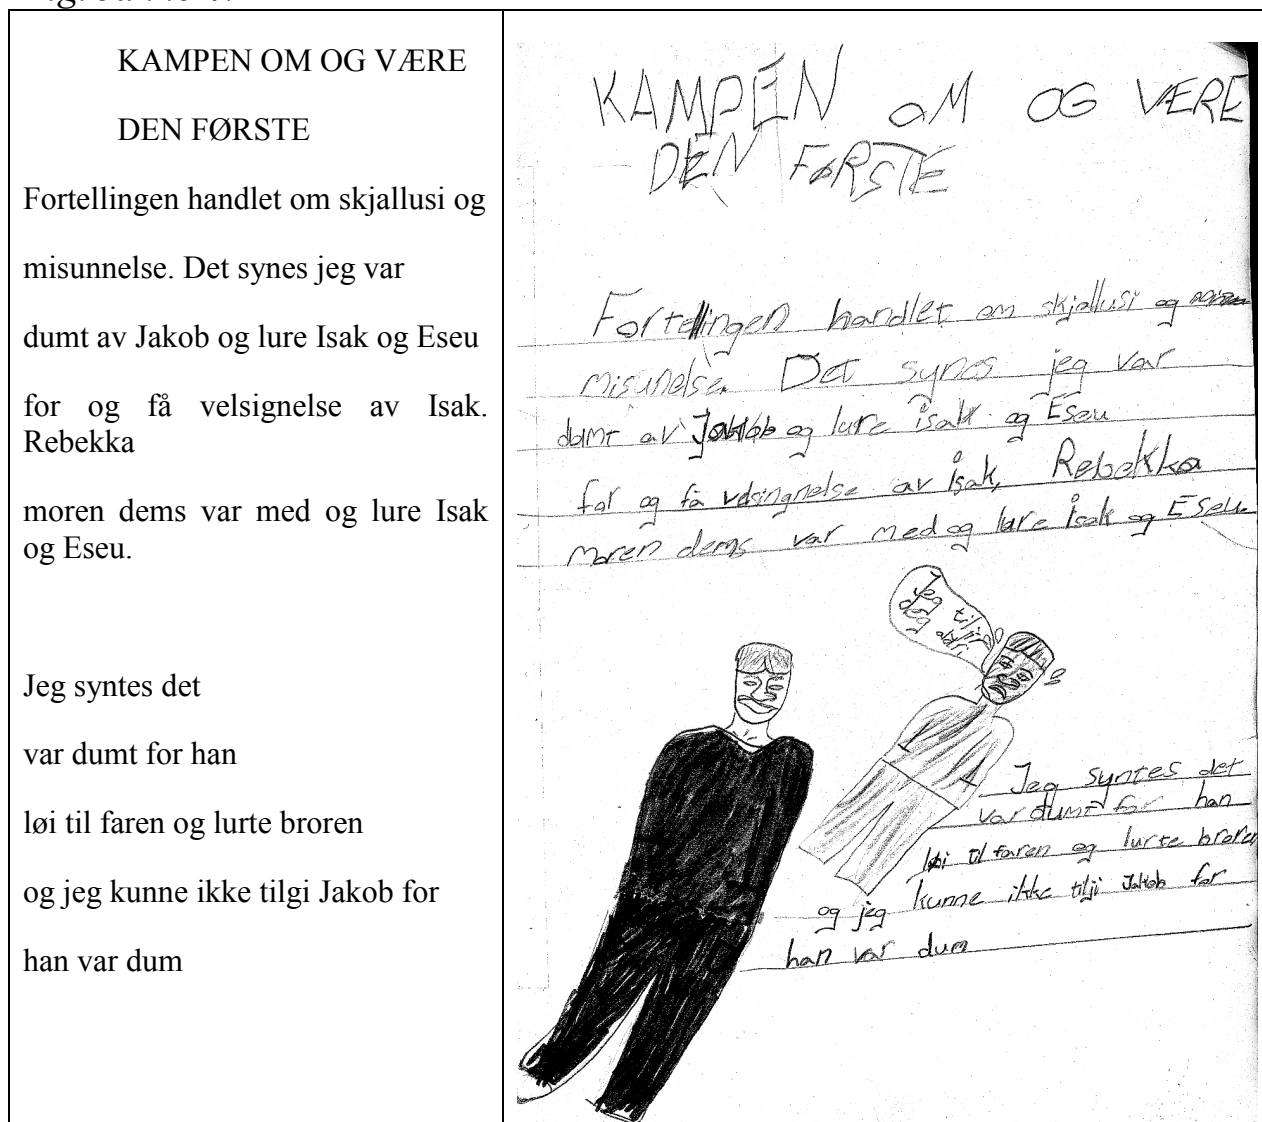 KAMPEN OM OG VÆRE
DEN FØRSTE
Fortellingen handlet om skjallusi og
misunnelse. Det synes jeg var
dumt av Jakob og lure Isak og Eseu
for og få velsignelse av Isak.
Rebekka
moren dems var med og lure Isak
og Eseu.
Jeg syntes det
var dumt for han
løi til faren og lurte broren
og jeg kunne ikke tilgi Jakob for
han var dum
KAMPEN OM OG VÆRE
DEN FØRSTE
Fortellingen handlet om skjallusi og
misunelse. Det synes jeg var
dumt av Jakob og lure isak og Eseu
for og få velsingnelse av isak, Rebekka
moren dems var med og lure isak og Eseu
Jeg
deg
Jeg syntes det
var dumt for han
løi til faren og lurte broren
og jeg kunne ikke tilji Jakob for
han var dum